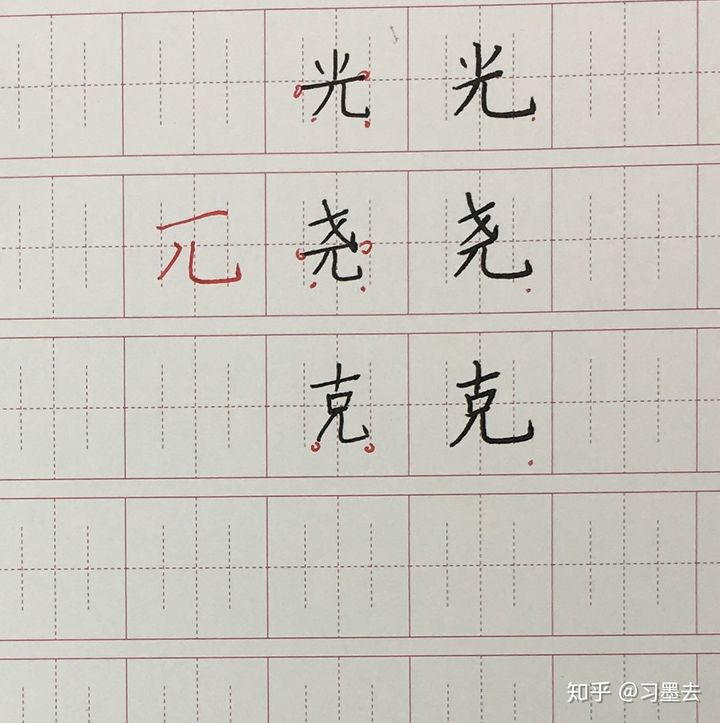 光 光
兀 尧 尧
克 克
知乎 @习墨去